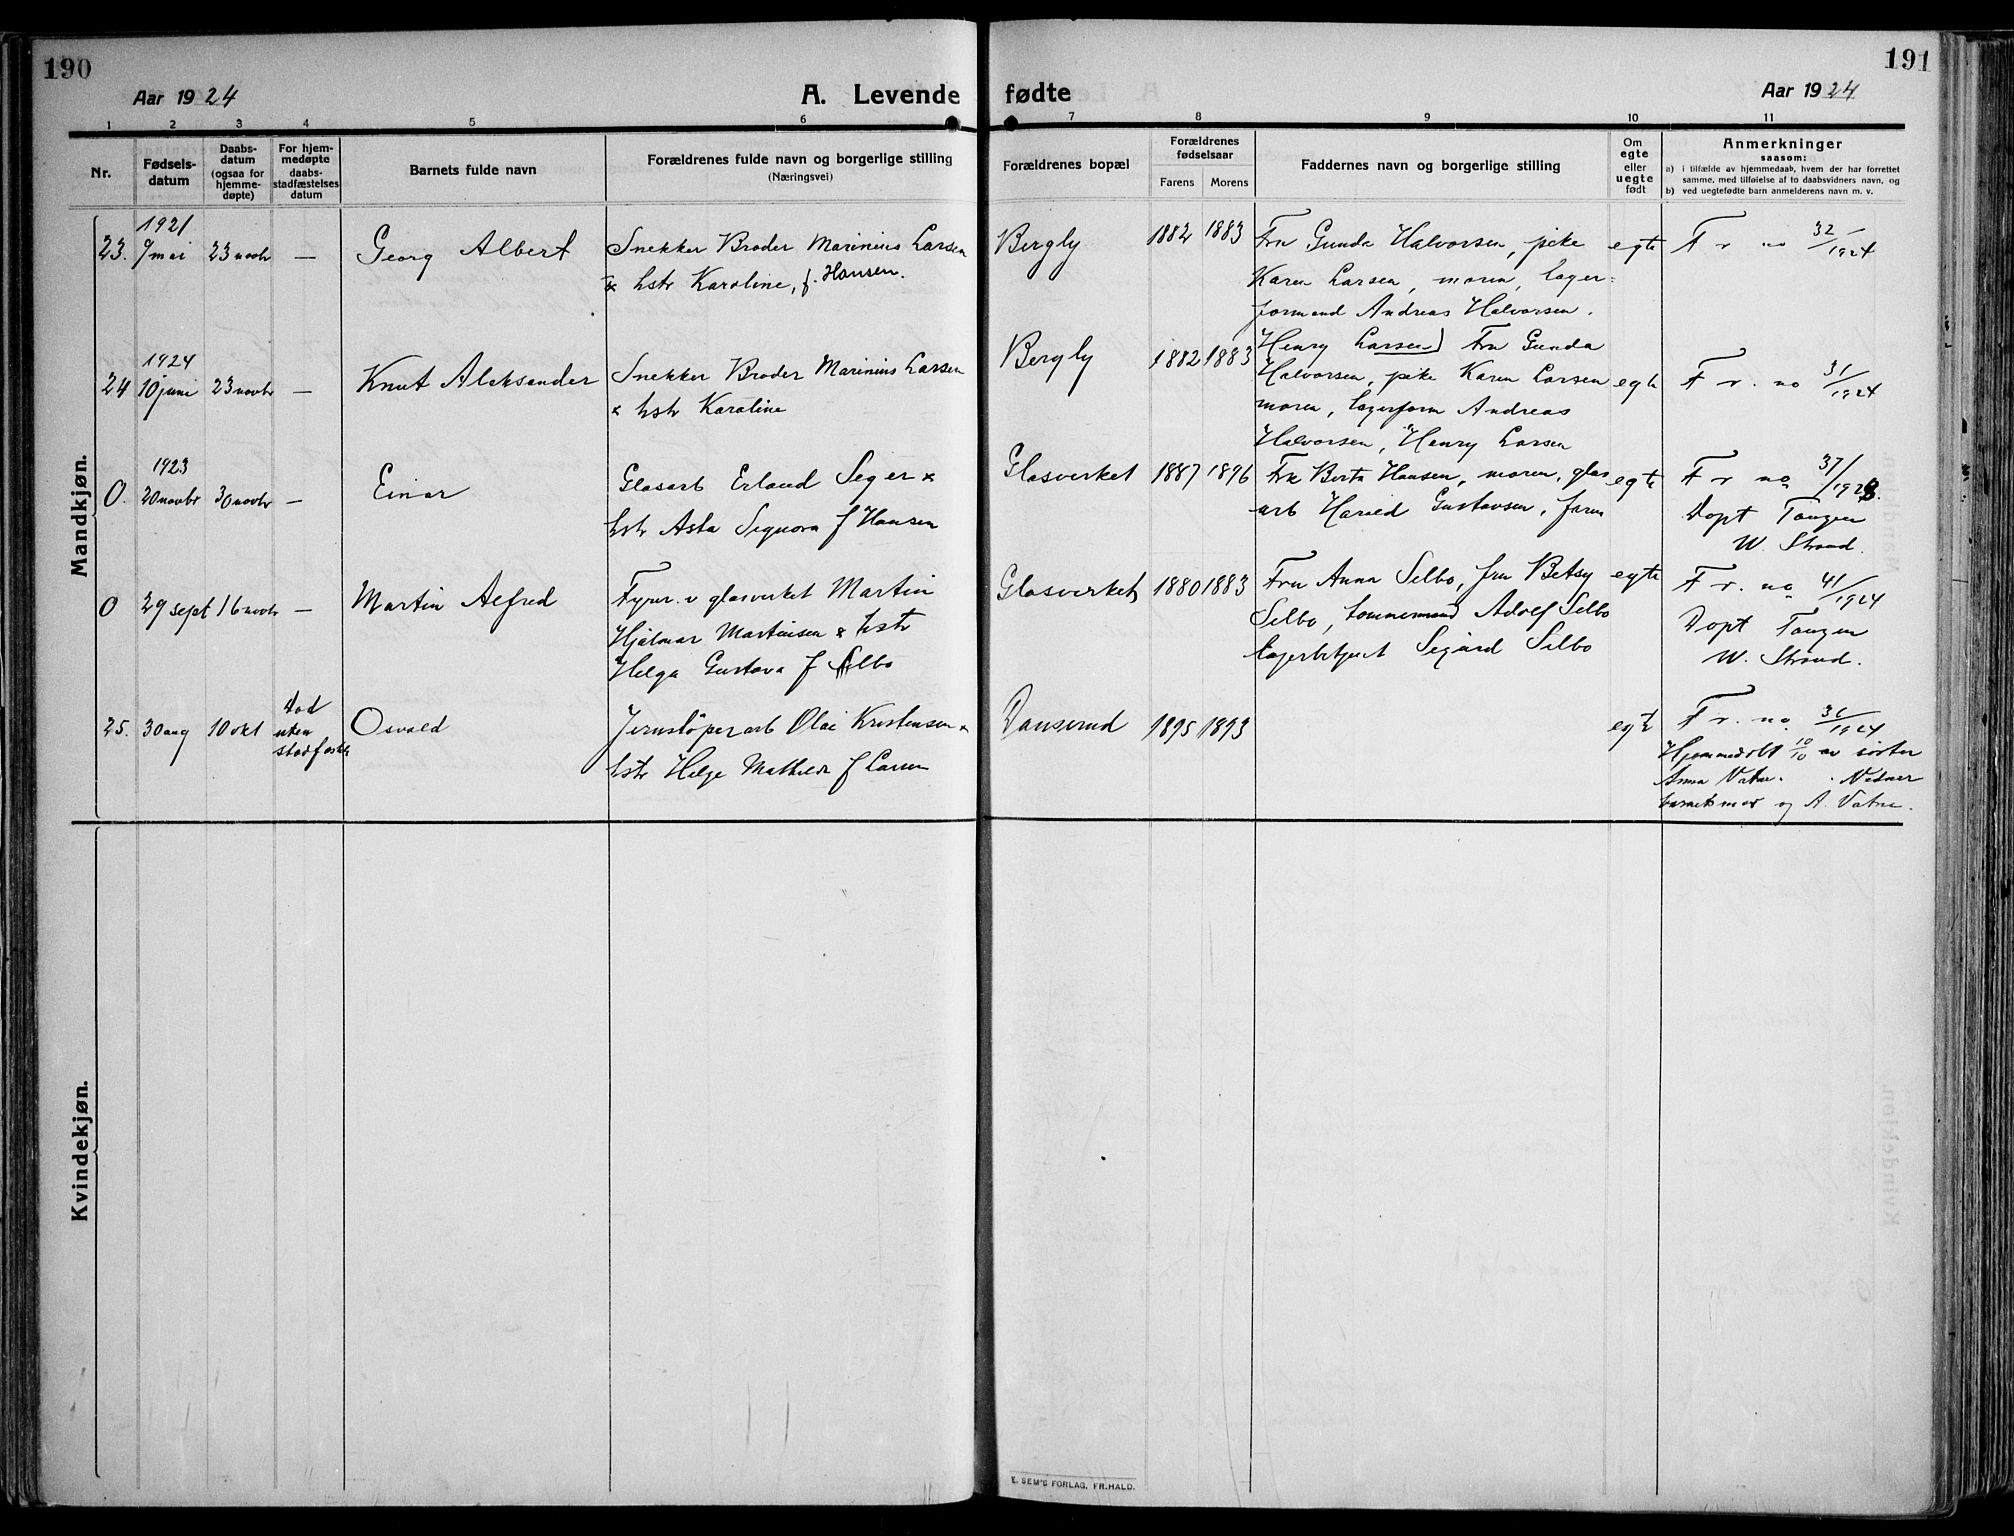 190
191
Aar 1924
A. Levende fødte
Aar 1924
1 2 3 4 5 6 7 8 9 10 11
Nr.
Fødsels-
datum
Daabs-
datum
(ogsaa for
hjemme-
døpte)
For hjem-
medøpte
daabs-
stadfæstelses
datum
Barnets fulde navn
Forældrenes fulde navn og borgerlige stilling
(Næringsvei)
Forældrenes bopæl
Forældrenes
fødselsaar
Farens Morens
Faddernes navn og borgerlige stilling
Om
egte
eller
uegte
født
Anmerkninger
saasom:
a) i tilfælde av hjemmedaab, hvem der har forrettet
samme, med tilføielse af to daabsvidners navn, og
b) ved uegtefødte barn anmelderens navn m. v.
Mandkjøn.
1921
23. 9/mai 23 novbr — Georg Albert
Snekker Broder Marinius Larsen
& hstr Karoline, f. Hansen.
Bergly 1882 1883
Fru Gunda Halvorsen, pike
Karen Larsen, moren, lager-
formand Andreas Halvorsen.
Henry Larsen)
egte
F r no 32/1924
1924
24 10 juni 23 novbr — Knut Aleksander
Snekker Broder Marinius Larsen
& hstr Karoline
Bergly 1882 1883
Fru Gunda
Halvorsen, pike Karen Larsen
moren, lagerform Andreas
Halvorsen, Henry Larsen
egte
F r. no 31/1924
1923
0. 20 novbr 30 novbr — Einar
Glasarb Erland Seger &
hstr Asta Signora f Hansen
Glasverket 1887 1896
Frk Berta Hansen, moren, glas
arb Harald Gustavsen, faren
egte
F r no 37/1923.
Døpt Tangen
W. Strand.
0 29 sept 16 novbr — Martin Alfred
Fyrer v glasverket Martin
Hjalmar Martinsen & hstr
Helga Gustava f Selbo
Glasverket 1880 1883
Fru Anna Selbo, fru Betsy
Selbo, tømmermand Adolf Selbo
lagerbetjent Sigurd Selbo
egte
F r. no 41/1924
Døpt Tangen
W. Strand.
25. 30 aug 10 okt
Død
uten
stadfæst
Osvald
Jernstøperarb Olai Kristensen &
hstr Helga Mathilde f Larsen
Danserud 1895 1893
egte
F r. no 36/1924
Hjemmedøbt 10/10 av søster
Anna Vatne. Vidner
barnets mor og A. Vatne.
Kvindekjøn.
E. SEM'S FORLAG, FR.HALD.